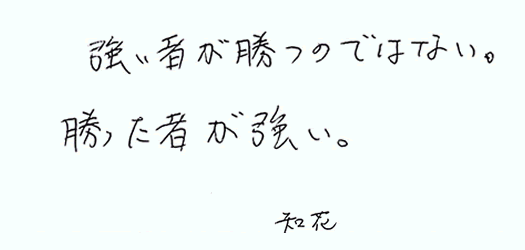 強い者が勝つのではない。
勝った者が強い。
知花